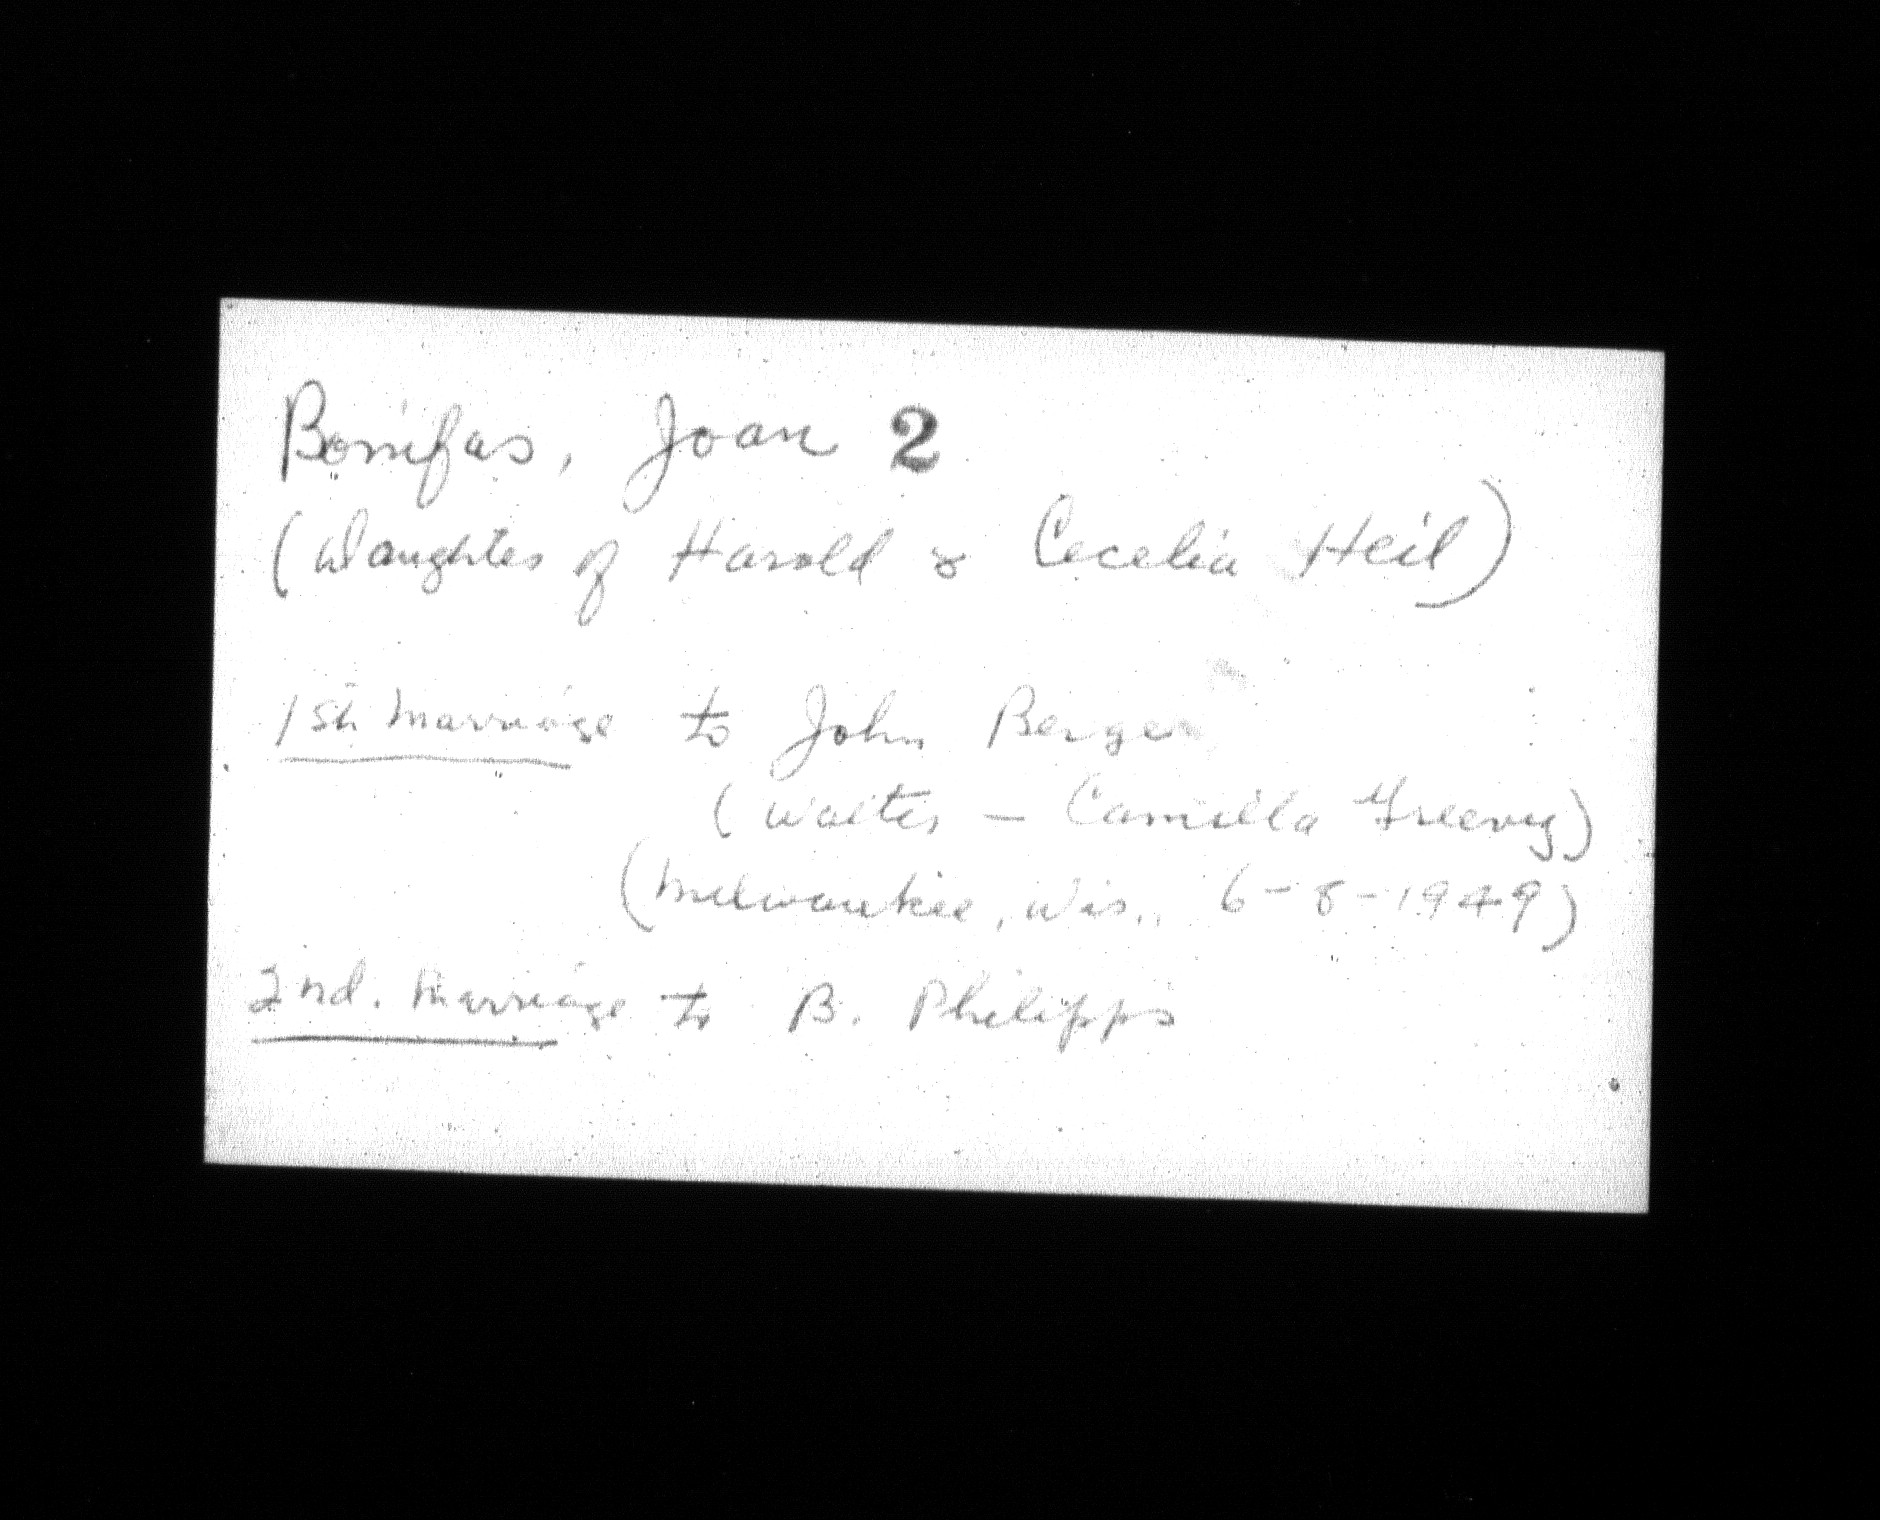 Bonifas, Joan 2
(Daughter of Harold & Cecelia Heil)
1st Marriage to John Berger
(Walter - Camilla Greevy)
(Milwaukee, Wis., 6-8-1949)
2nd. Marriage to B. Philipps